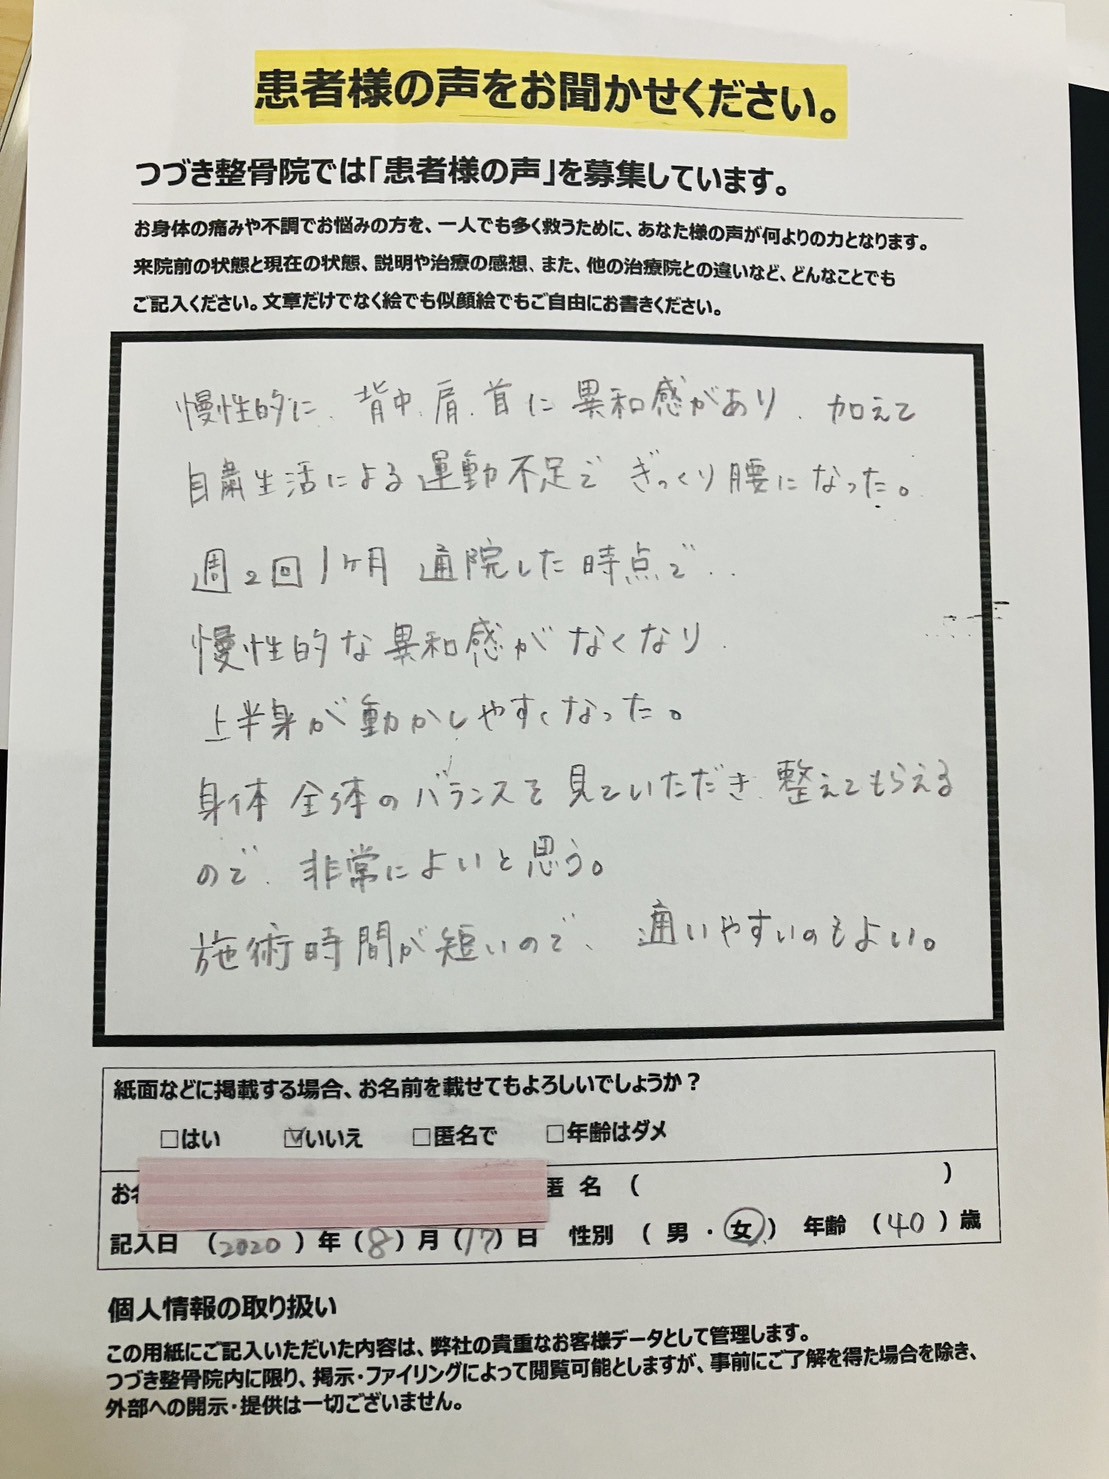 患者様の声をお聞かせください。
つづき整骨院では「患者様の声」を募集しています。
お身体の痛みや不調でお悩みの方を、一人でも多く救うために、あなた様の声が何よりの力となります。
来院前の状態と現在の状態、説明や治療の感想、また、他の治療院との違いなど、どんなことでも
ご記入ください。文章だけでなく絵でも似顔絵でもご自由にお書きください。
慢性的に、背中、肩、首に異和感があり、加えて
自粛生活による運動不足でぎっくり腰になった。
週2回1ヶ月通院した時点で、
慢性的な異和感がなくなり、
上半身が動かしやすくなった。
身体全体のバランスを見ていただき、整えてもらえる
ので、非常によいと思う。
施術時間が短いので、通いやすいのもよい。
紙面などに掲載する場合、お名前を載せてもよろしいでしょうか？
□はい ☑いいえ □匿名で □年齢はダメ
お名 匿名（ ）
記入日（2020）年（8）月（17）日 性別（男・女）年齢（40）歳
個人情報の取り扱い
この用紙にご記入いただいた内容は、弊社の貴重なお客様データとして管理します。
つづき整骨院内に限り、掲示・ファイリングによって閲覧可能としますが、事前にご了解を得た場合を除き、
外部への開示・提供は一切ございません。